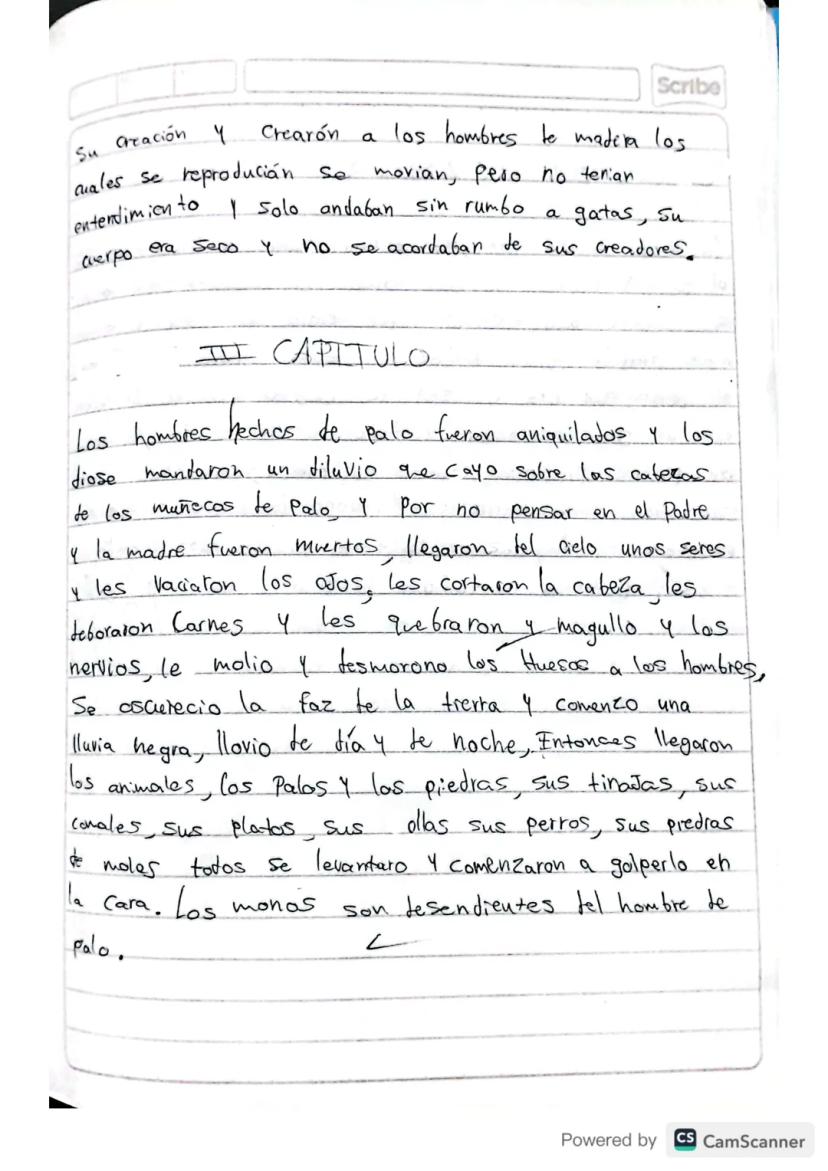 Scribe
Su creación y Crearón a los hombres de madera los
cuales se reprodución se movian, pero no tenian
entendimiento y solo andaban sin rumbo a gatas, su
cuerpo era seco y no se acordaban de sus creadores.
III CAPITULO
Los hombres hechos de palo fueron aniquilados y los
diose mandaron un diluvio que cayo sobre las cabezas
de los muñecos de palo, y por no pensar en el Padre
y la madre fueron muertos, llegaron del cielo unos seres
y les vaciaron los ojos, les cortaron la cabeza, les
deboraron Carnes y les quebraron y magullo y los
nervios, le molio y desmorono los Huesos a los hombres,
Se oscurecio la faz de la tierra y comenzo una
lluvia negra, llovio de día y de noche, Entonces llegaron
los animales, los Palos y las piedras, sus tinajas, sus
comales, sus platos, sus ollas sus perros, sus piedras
de moler todos se levantaro y comenzaron a golperlo en
la Cara. Los monos son desendientes del hombre de
palo.
Powered by CS CamScanner